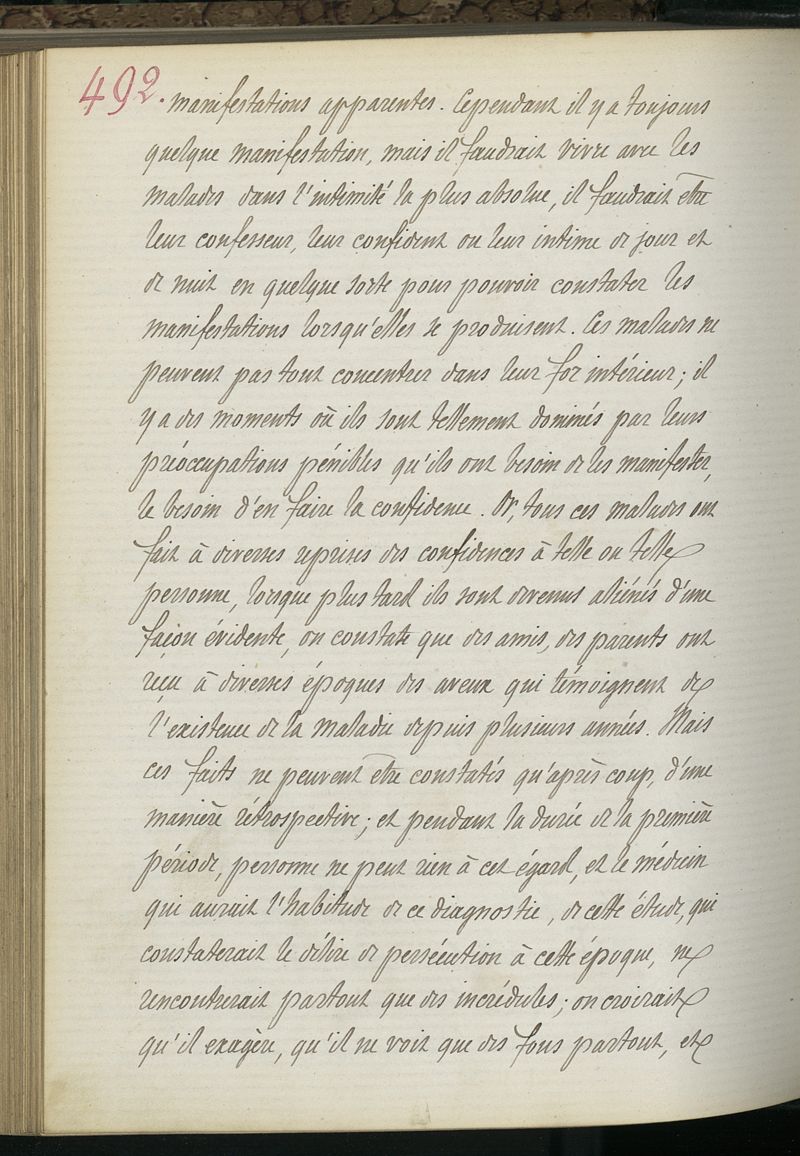 492. manifestations apparentes. Cependant il y a toujours
quelque manifestation, mais il faudrait vivre avec les
malades dans l'intimité la plus absolue, il faudrait être
leur confesseur, leur confident ou leur intime de jour et
de nuit en quelque sorte pour pouvoir constater les
manifestations lorsqu'elles se produisent. Ces malades ne
peuvent pas tout concentrer dans leur for intérieur; il
y a des moments où ils sont tellement dominés par leurs
préoccupations pénibles qu'ils ont besoin de les manifester,
le besoin d'en faire la confidence. Or, tous ces malades ont
fait à diverses reprises des confidences à telle ou telle
personne, lorsque plus tard ils sont devenus aliénés d'une
façon évidente, on constate que des amis, des parents ont
reçu à diverses époques des aveux qui témoignent de
l'existence de la maladie depuis plusieurs années. Mais
ces faits ne peuvent être constatés qu'après coup, d'une
manière rétrospective; et pendant la durée de la première
période, personne ne peut rien à cet égard, et le médecin
qui aurait l'habitude de ce diagnostic, de cette étude, qui
constaterait le délire de persécution à cette époque, ne
rencontrerait partout que des incrédules; on croirait
qu'il exagère, qu'il ne voit que des fous partout, et